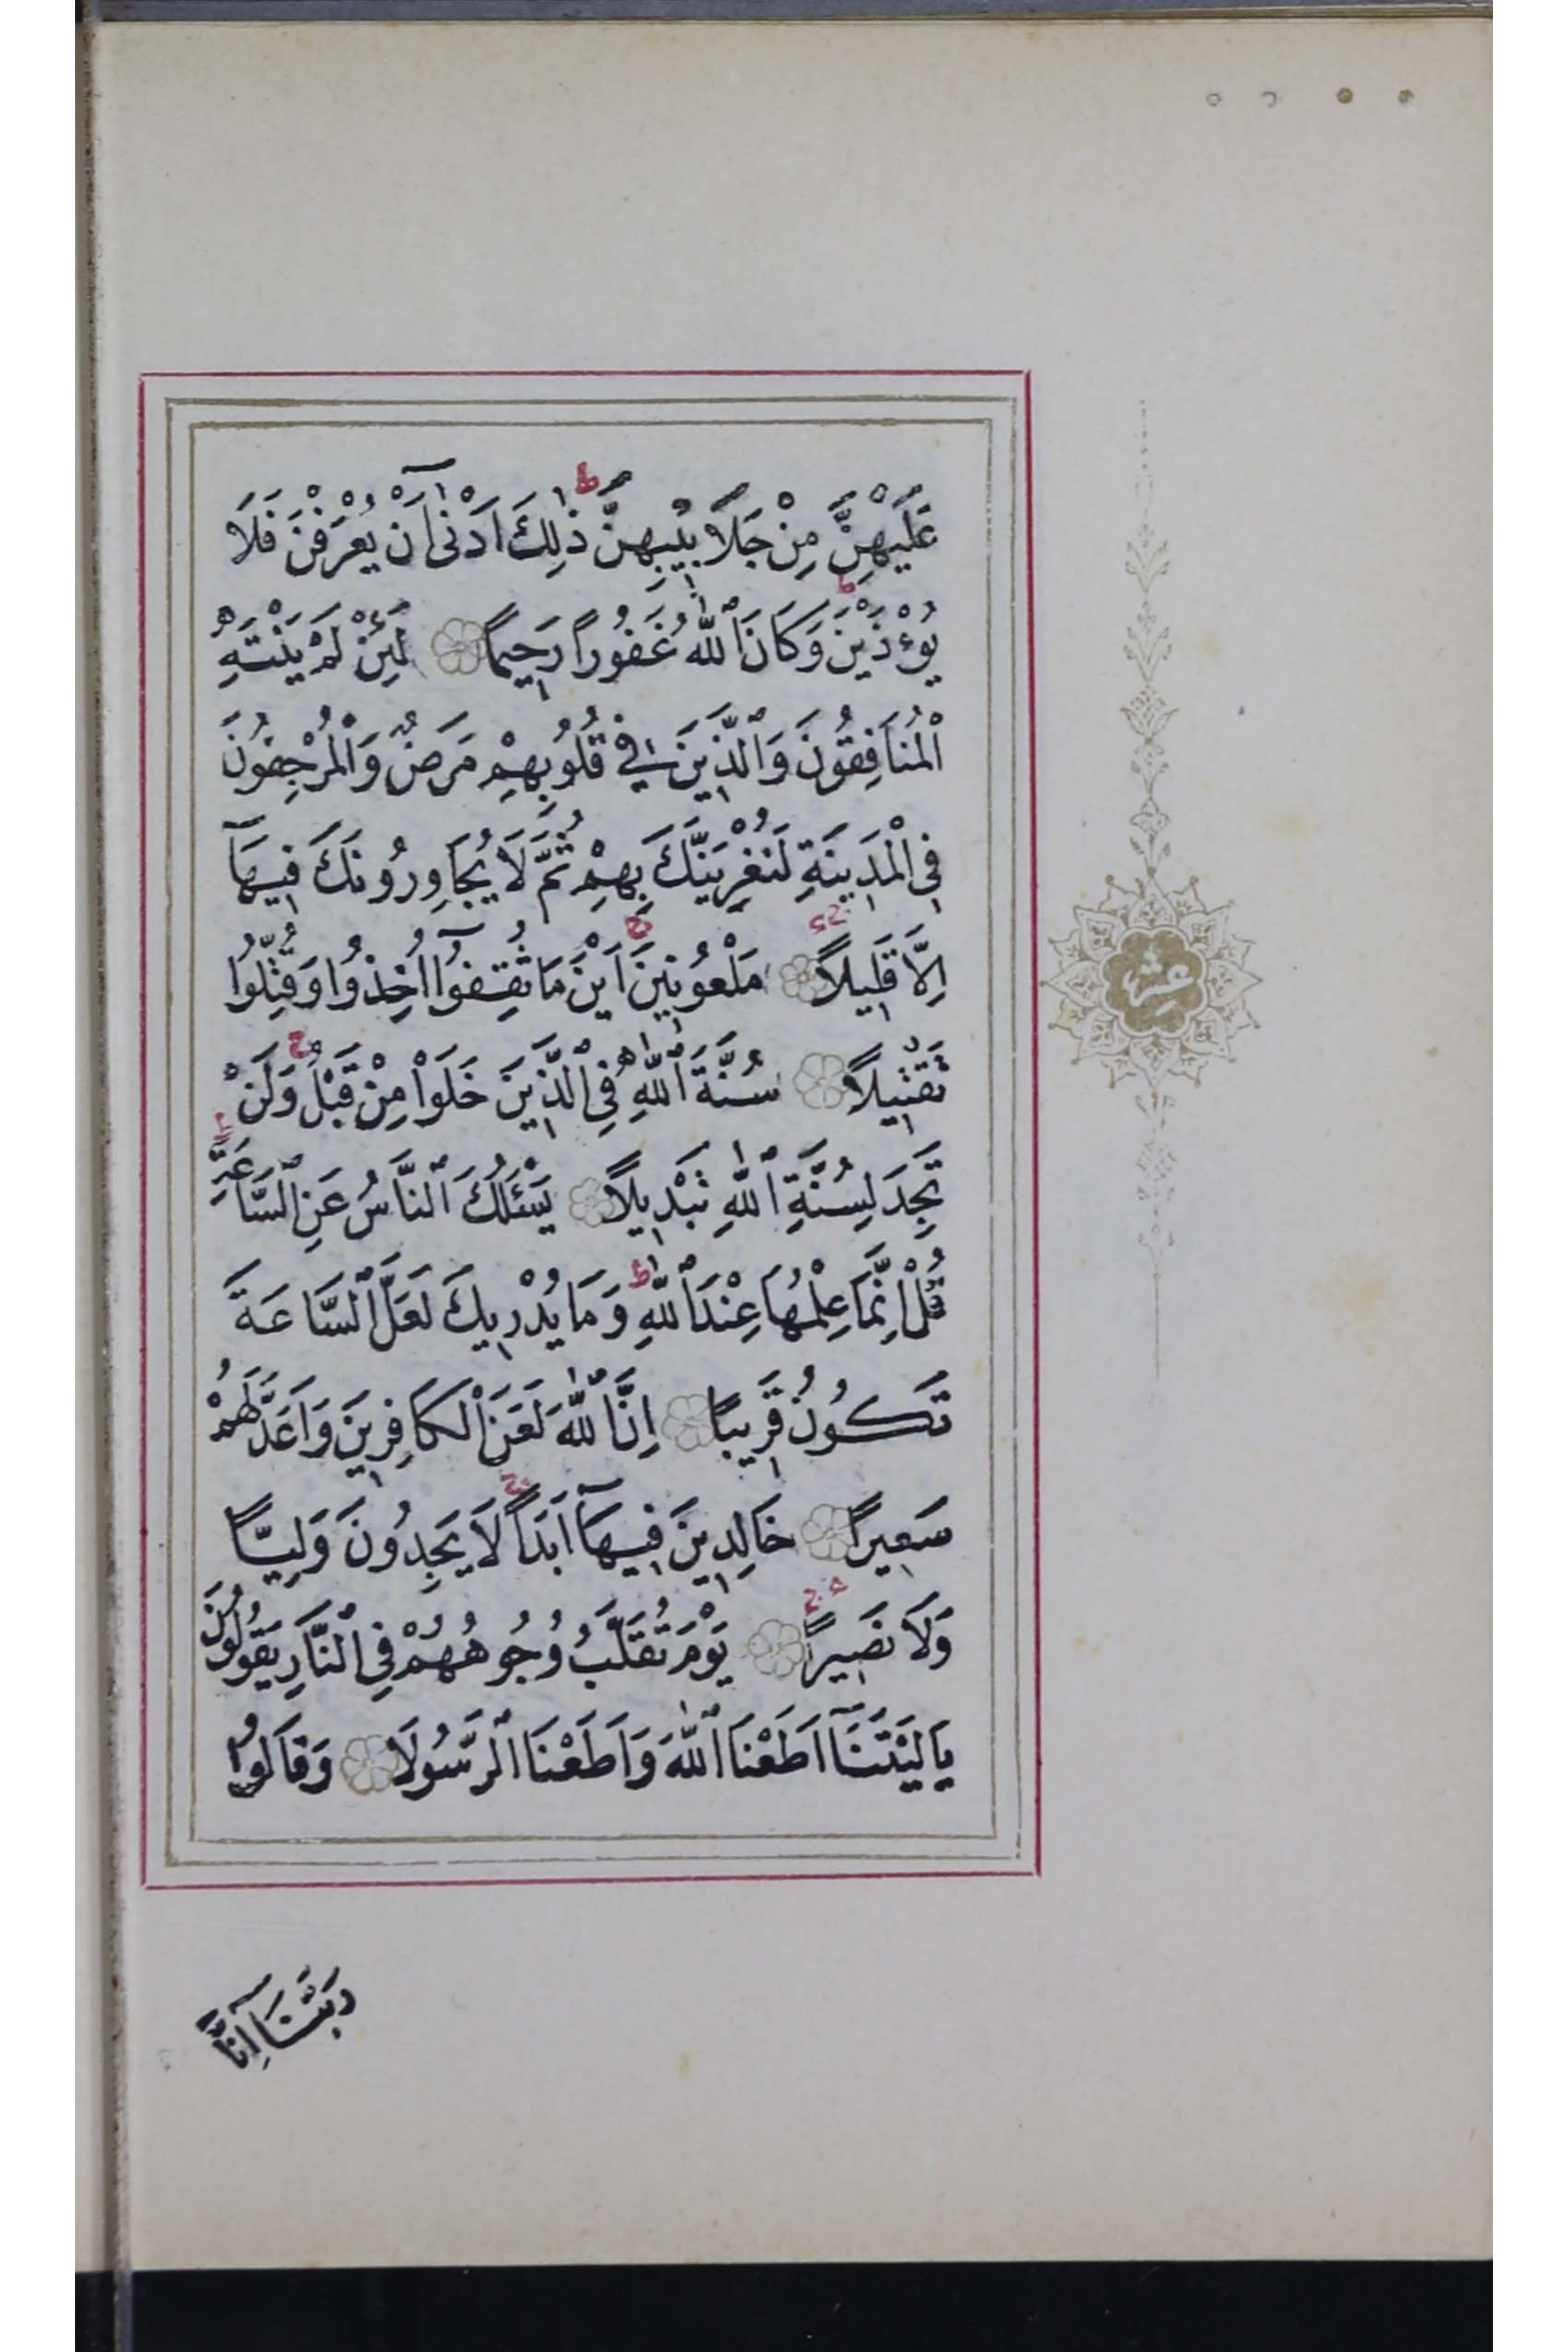 عَلَيْهِنَّ مِنْ جَلَابِيبِهِنَّ ذٰلِكَ اَدْنٰٓى اَنْ يُعْرَفْنَ فَلَا
يُؤْذَيْنَ وَكَانَ اللّٰهُ غَفُورًا رَحِيمًا لَئِنْ لَمْ يَنْتَهِ
الْمُنَافِقُونَ وَالَّذِينَ فِي قُلُوبِهِمْ مَرَضٌ وَالْمُرْجِفُونَ
فِي الْمَدِينَةِ لَنُغْرِيَنَّكَ بِهِمْ ثُمَّ لَا يُجَاوِرُونَكَ فِيهَٓا
اِلَّا قَلِيلًا مَلْعُونِينَ اَيْنَ مَا ثُقِفُٓوا اُخِذُوا وَقُتِّلُوا
تَقْتِيلًا سُنَّةَ اللّٰهِ فِي الَّذِينَ خَلَوْا مِنْ قَبْلُ وَلَنْ
تَجِدَ لِسُنَّةِ اللّٰهِ تَبْدِيلًا يَسْـَٔلُكَ النَّاسُ عَنِ السَّاعَةِ
قُلْ اِنَّمَا عِلْمُهَا عِنْدَ اللّٰهِ وَمَا يُدْرِيكَ لَعَلَّ السَّاعَةَ
تَكُونُ قَرِيبًا اِنَّ اللّٰهَ لَعَنَ الْكَافِرِينَ وَاَعَدَّ لَهُمْ
سَعِيرًا خَالِدِينَ فِيهَٓا اَبَدًا لَا يَجِدُونَ وَلِيًّا
وَلَا نَصِيرًا يَوْمَ تُقَلَّبُ وُجُوهُهُمْ فِي النَّارِ يَقُولُونَ
يَا لَيْتَنَٓا اَطَعْنَا اللّٰهَ وَاَطَعْنَا الرَّسُولَا وَقَالُوا
رَبَّنَٓا اِنَّٓا
عشر